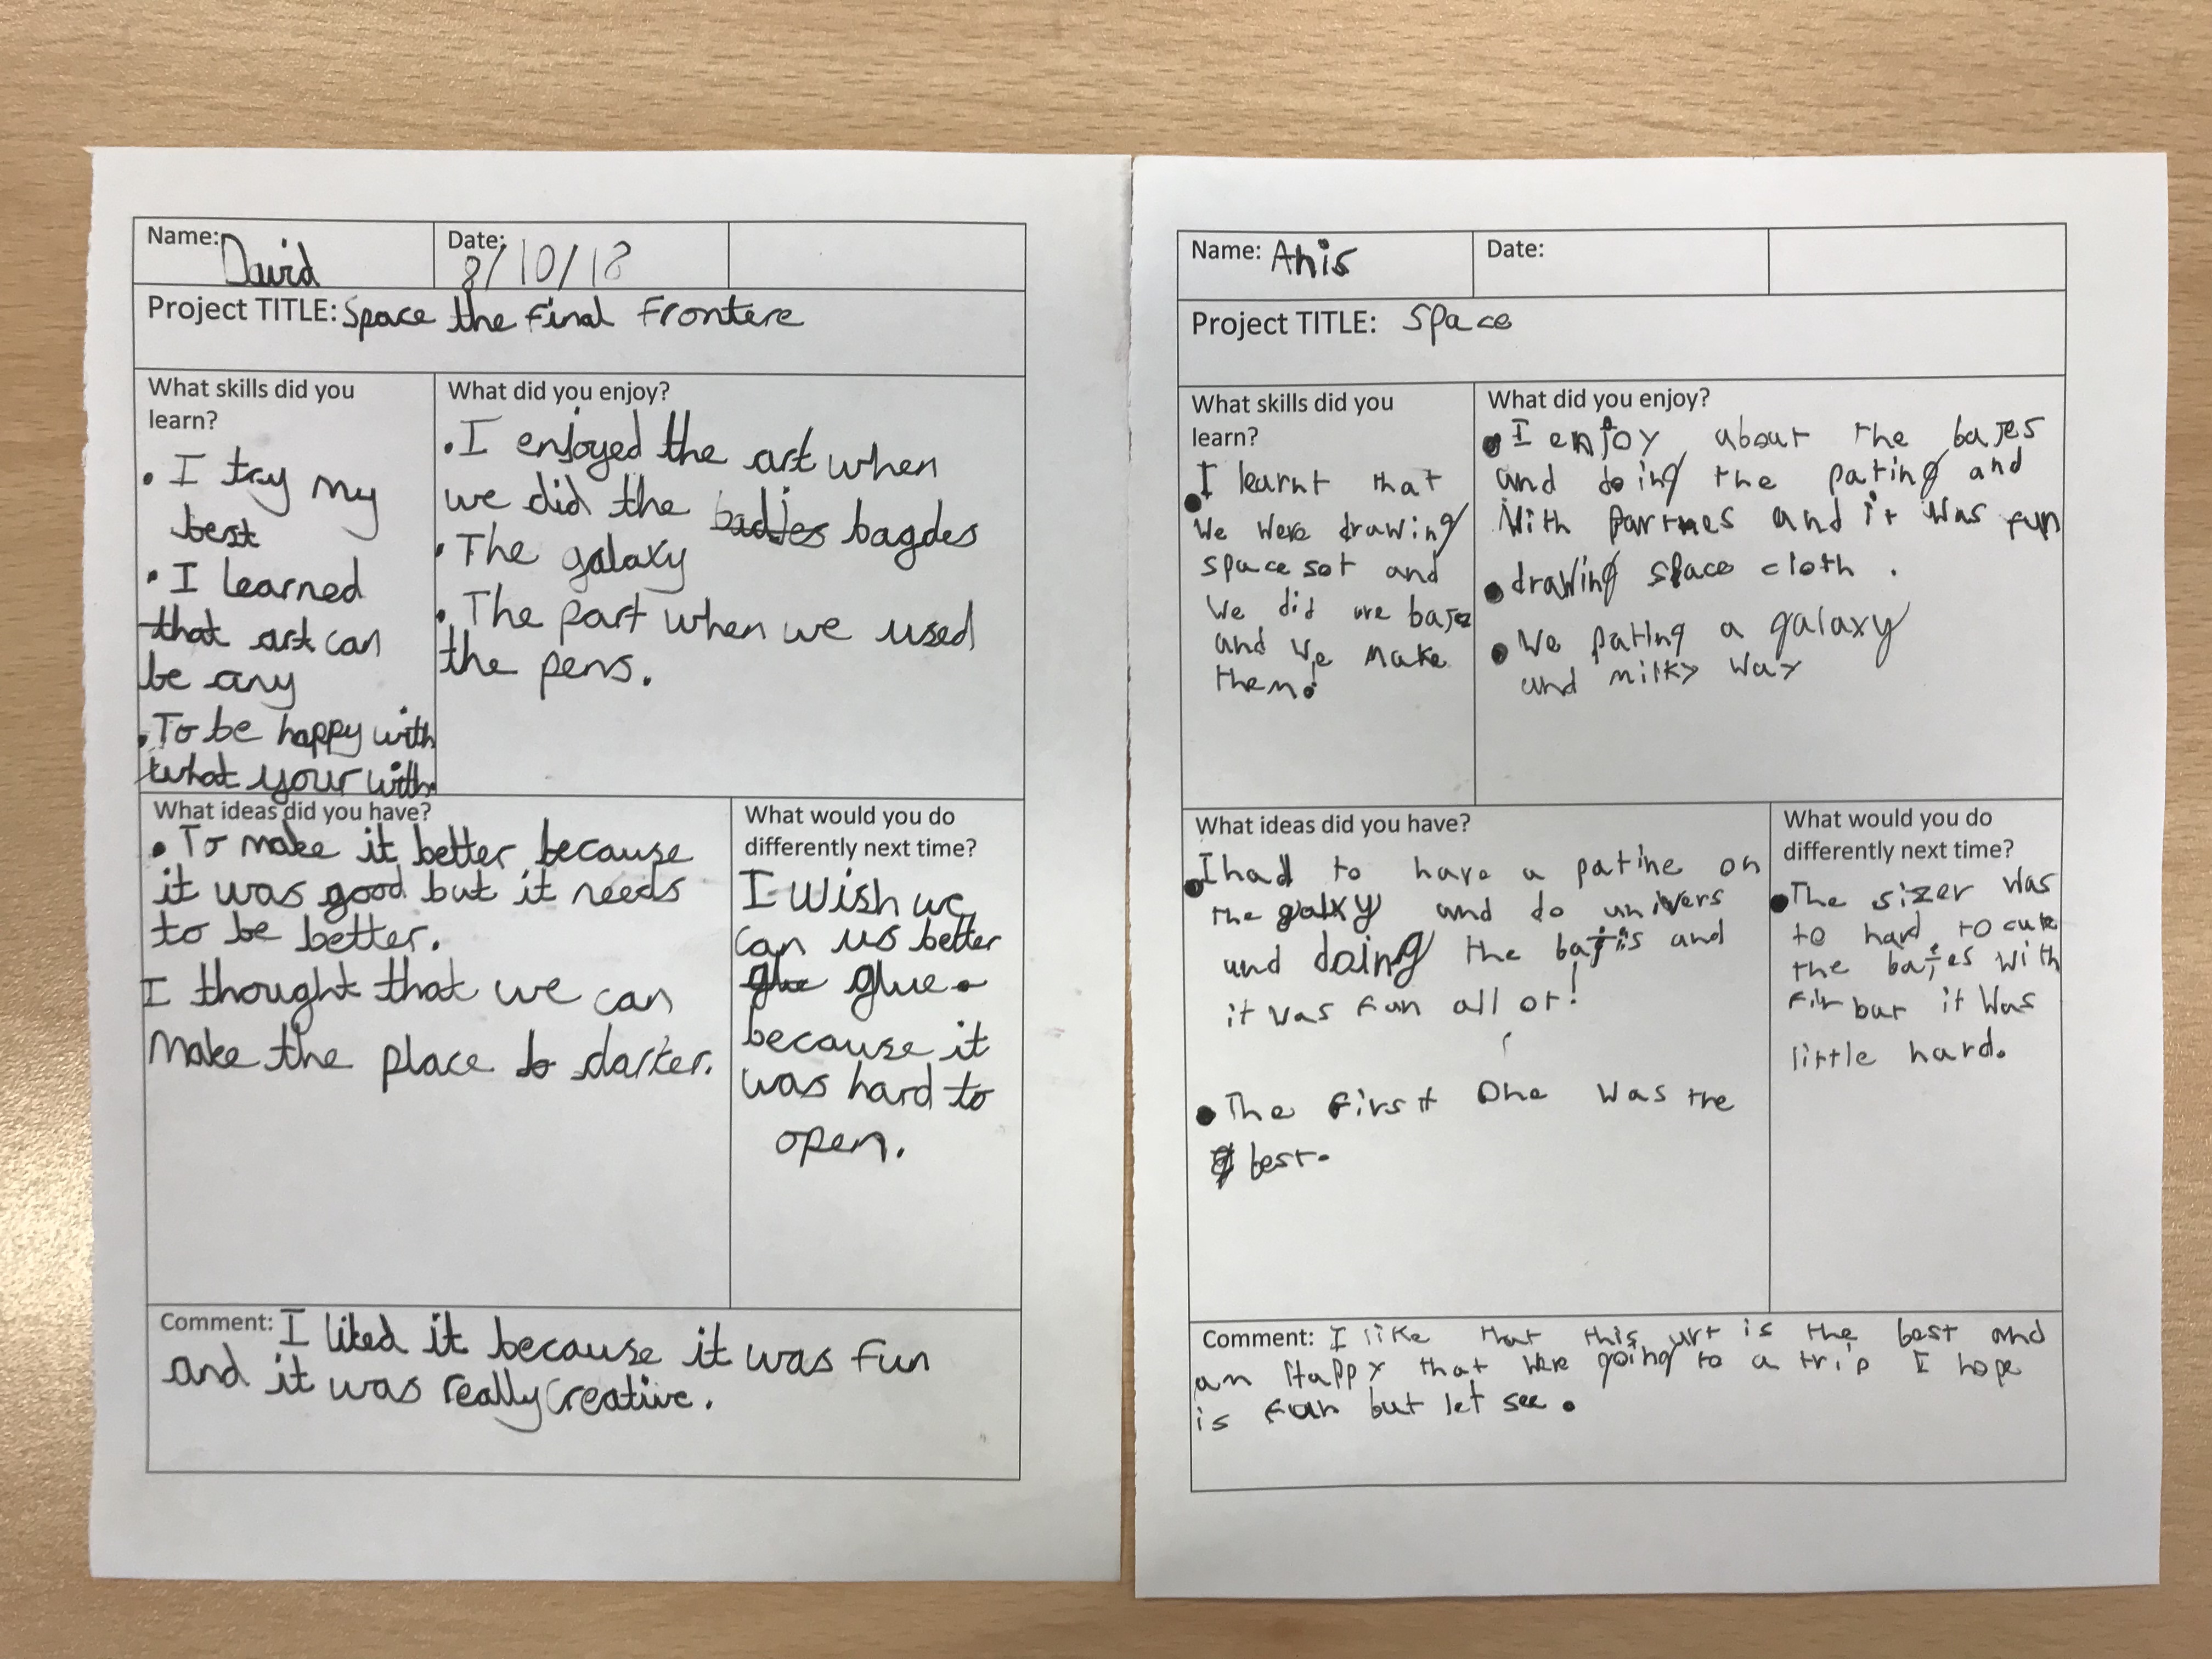 Name: David
Date: 8/10/18
Project TITLE: Space the final frontere
What skills did you
learn?
• I try my
best
• I learned
that art can
be any
• To be happy with
what your with
What did you enjoy?
• I enjoyed the art when
we did the badjes bagdes
• The galaxy
• The part when we used
the pens.
What ideas did you have?
• To make it better because
it was good but it needs
to be better.
I thought that we can
make the place darker.
What would you do
differently next time?
I wish we
can us better
glue glue
because it
was hard to
open.
Comment: I liked it because it was fun
and it was really creative.
Name: Anis
Date:
Project TITLE: Space
What skills did you
learn?
• I learnt that
we were drawing
space sot and
we did are bajes
and we make
them!
What did you enjoy?
• I enjoy about the bajes
and doing the pating and
with partnes and it was fun
• drawing space cloth .
• We pating a galaxy
and milky way
What ideas did you have?
• I had to have a patine on
the galxy and do univers
and doing the bajis and
it was fun all or!
• The first one was the
best.
What would you do
differently next time?
• The sizer was
to hard to cut
the bajes with
but it was
little hard.
Comment: I like that this art is the best and
am Happy that were going to a trip I hope
is fun but let see.